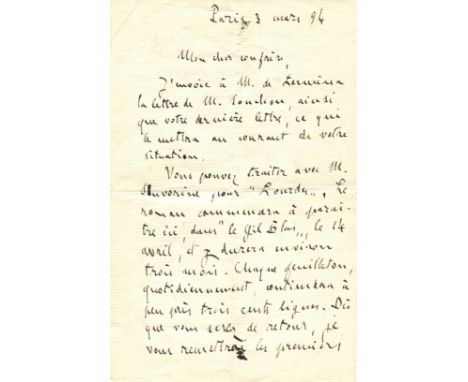 Paris 3 mars 94
Mon cher confrère,
J'envoie à M. de
la lettre de M. Souchon, ainsi
que votre dernière lettre, ce qui
le mettra au courant de votre
situation.
Vous pouvez traiter avec M.
Souvorine pour "Lourdes". Le
roman commencera à parai-
tre ici, dans "le Gil Blas", le 14
avril, et y durera environ
trois mois. Chaque feuilleton,
quotidiennement, contiendra à
peu près trois cents lignes. Dès
que vous serez de retour, je
vous remettrai les premières